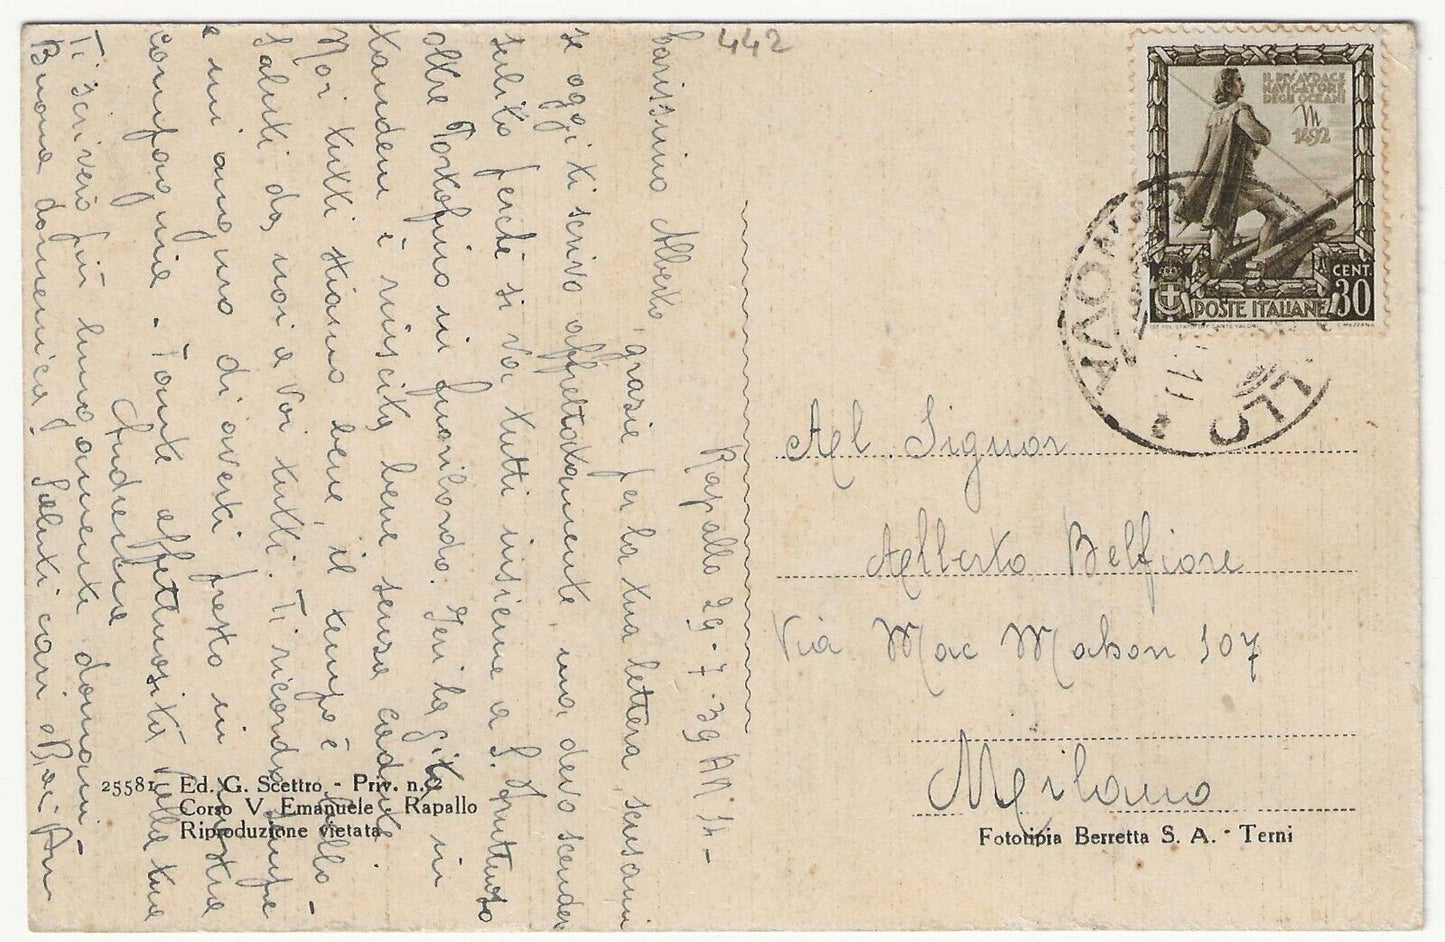 442
Rapallo 29-7-39 AM 14-
Carissimo Alberto, grazie per la tua lettera, scusami
se oggi ti scrivo affrettatamente, ma devo scendere
subito perchè si va tutti insieme a S. Fruttuoso
oltre Portofino in fuoribordo. Ieri la gita in
tandem è riuscita bene senza cadute.
Noi tutti stiamo bene, il tempo è bello -
Saluti da noi a voi tutti. Ti ricordo sempre
e mi auguro di averti presto in nostra
compagnia - Tante affettuosità dalla tua
Ti scriverò più lungamente domani
Buona domenica! Saluti cari e Baci
IL PIV' AVDACE
NAVIGATORE
DEGLI OCEANI
1492
CENT.
30
POSTE ITALIANE
LLO
Al Signor
Alberto Belfiore
Via Mac Mahon 107
Milano
25581 Ed. G. Scettro - Priv. n.
Corso V. Emanuele - Rapallo
Riproduzione vietata
Fototipia Berretta S. A. - Terni